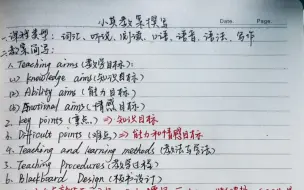 小英教案撰写
Date. Page.
一.课程类型：词汇、听说、阅读、口语、语音、语法、写作
二.教案简写：
1. Teaching aims (教学目标)：
(1) knowledge aims (知识目标)
(2) Ability aims (能力目标)
(3) Emotional aims (情感目标)
2. key points (重点) ⇒ 知识目标
b. Difficult points (难点) ⇒ 能力和情感目标
4. Teaching and learning methods (教法与学法)
5. Teaching Procedures (教学过程)
6. Blackboard Design (板书设计)